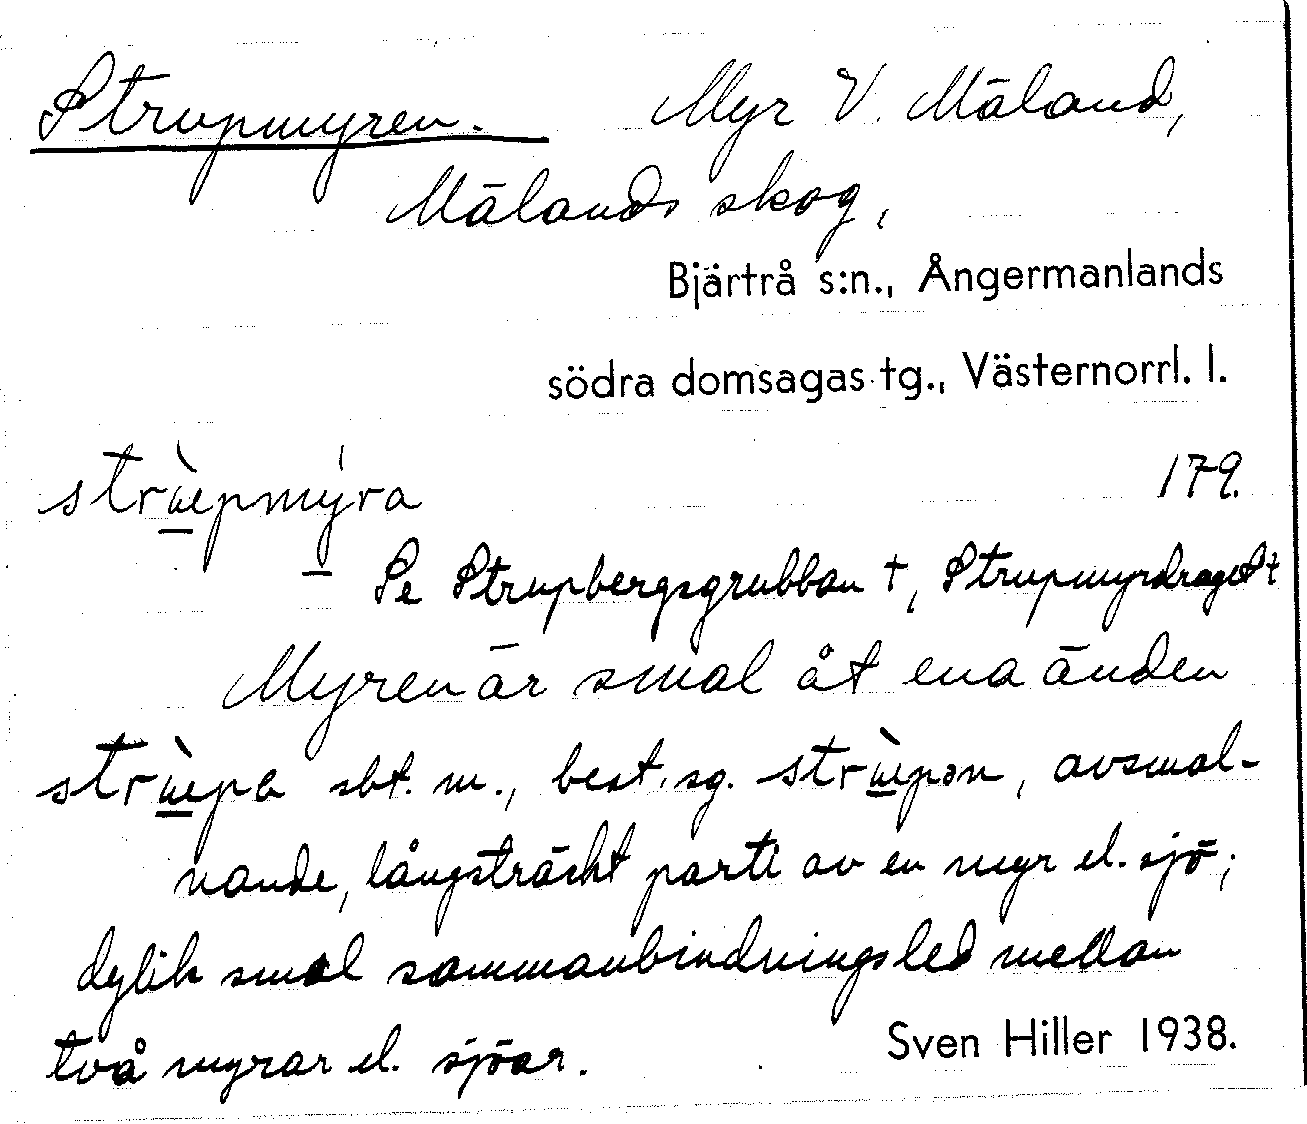 Strupmyren. Myr V. Mäland,
Mälands skog,
Bjärtrå s:n., Ångermanlands
södra domsagas tg., Västernorrl. l.
179.
Se Strupbergsgrubban †, Strupmyrdraget †
Myren är smal åt ena änden
sbt. m., best. sg. , avsmal-
nande, långsträckt parti av en myr el. sjö;
dylik smal sammanbindningsled mellan
två myrar el. sjöar.
Sven Hiller 1938.